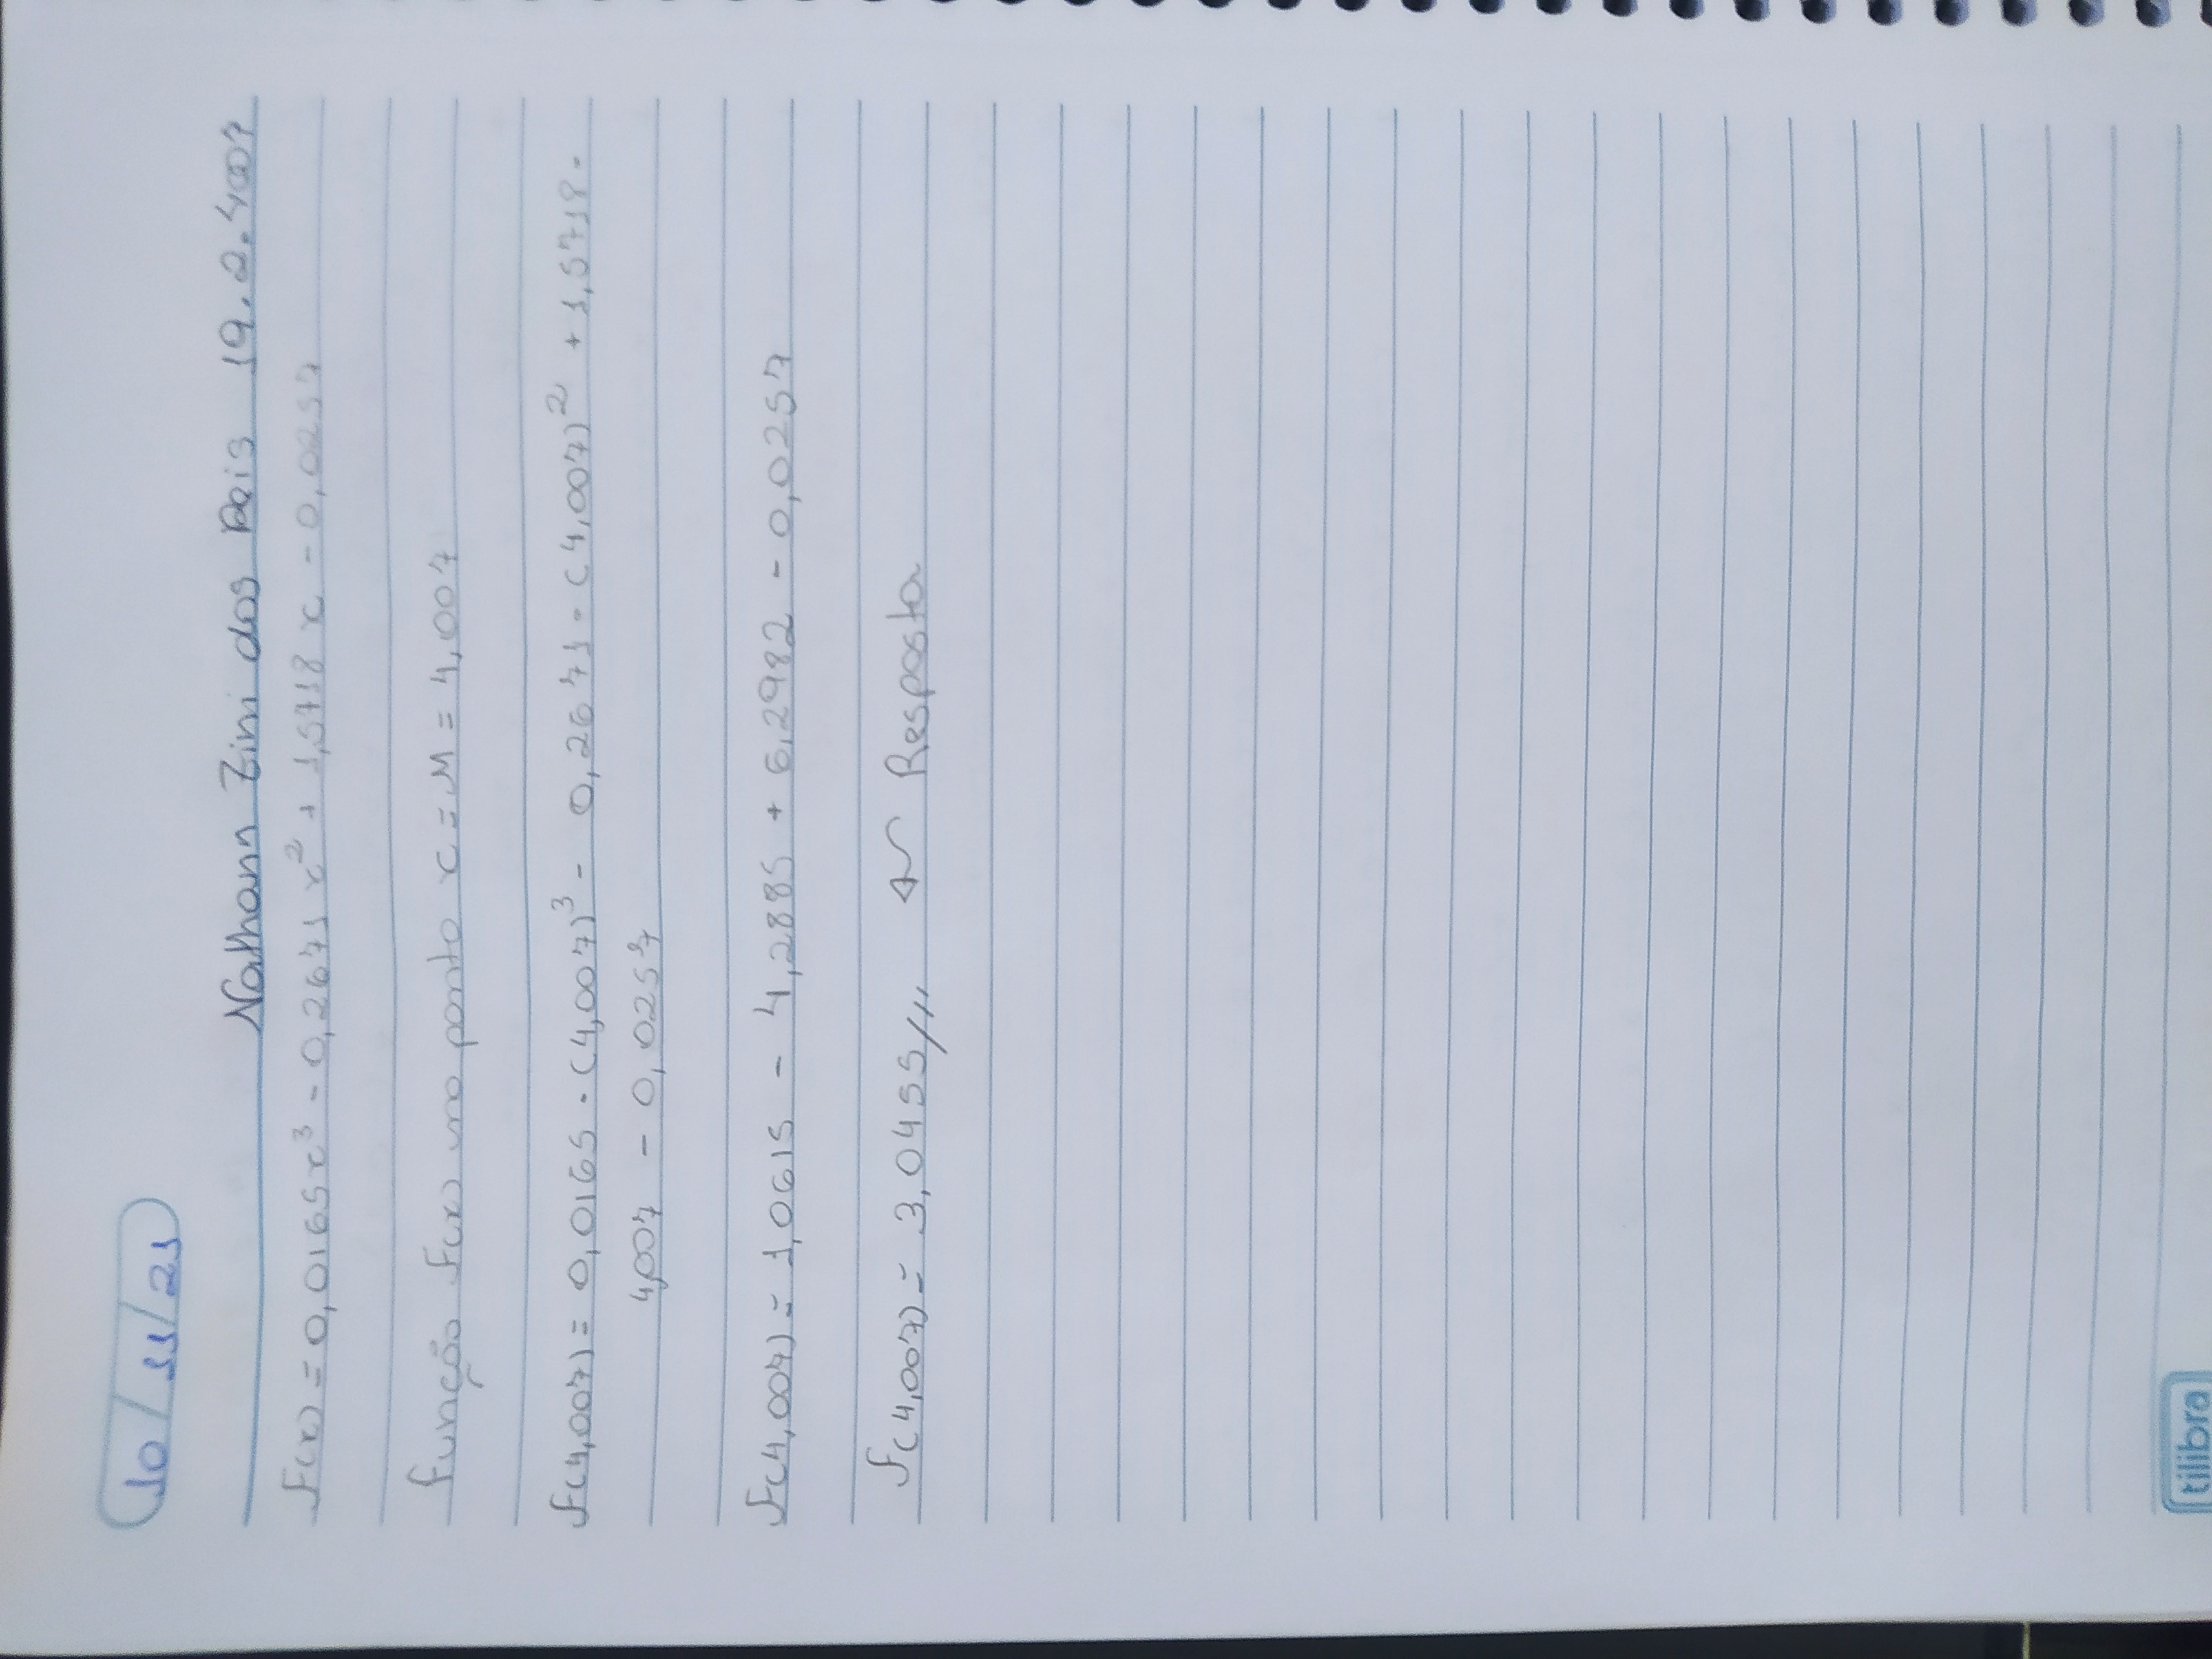 10/11/21
Nathann Zini dos Reis 19.2.4007
F(x) = 0,0165x³ - 0,2671x² + 1,5718x - 0,0257
função F(x) no ponto x = M = 4,007
F(4,007) = 0,0165 · (4,007)³ - 0,2671 · (4,007)² + 1,5718 ·
4,007 - 0,0257
F(4,007) = 1,0615 - 4,2885 + 6,2982 - 0,0257
F(4,007) = 3,0455/// ← Resposta
tilibra